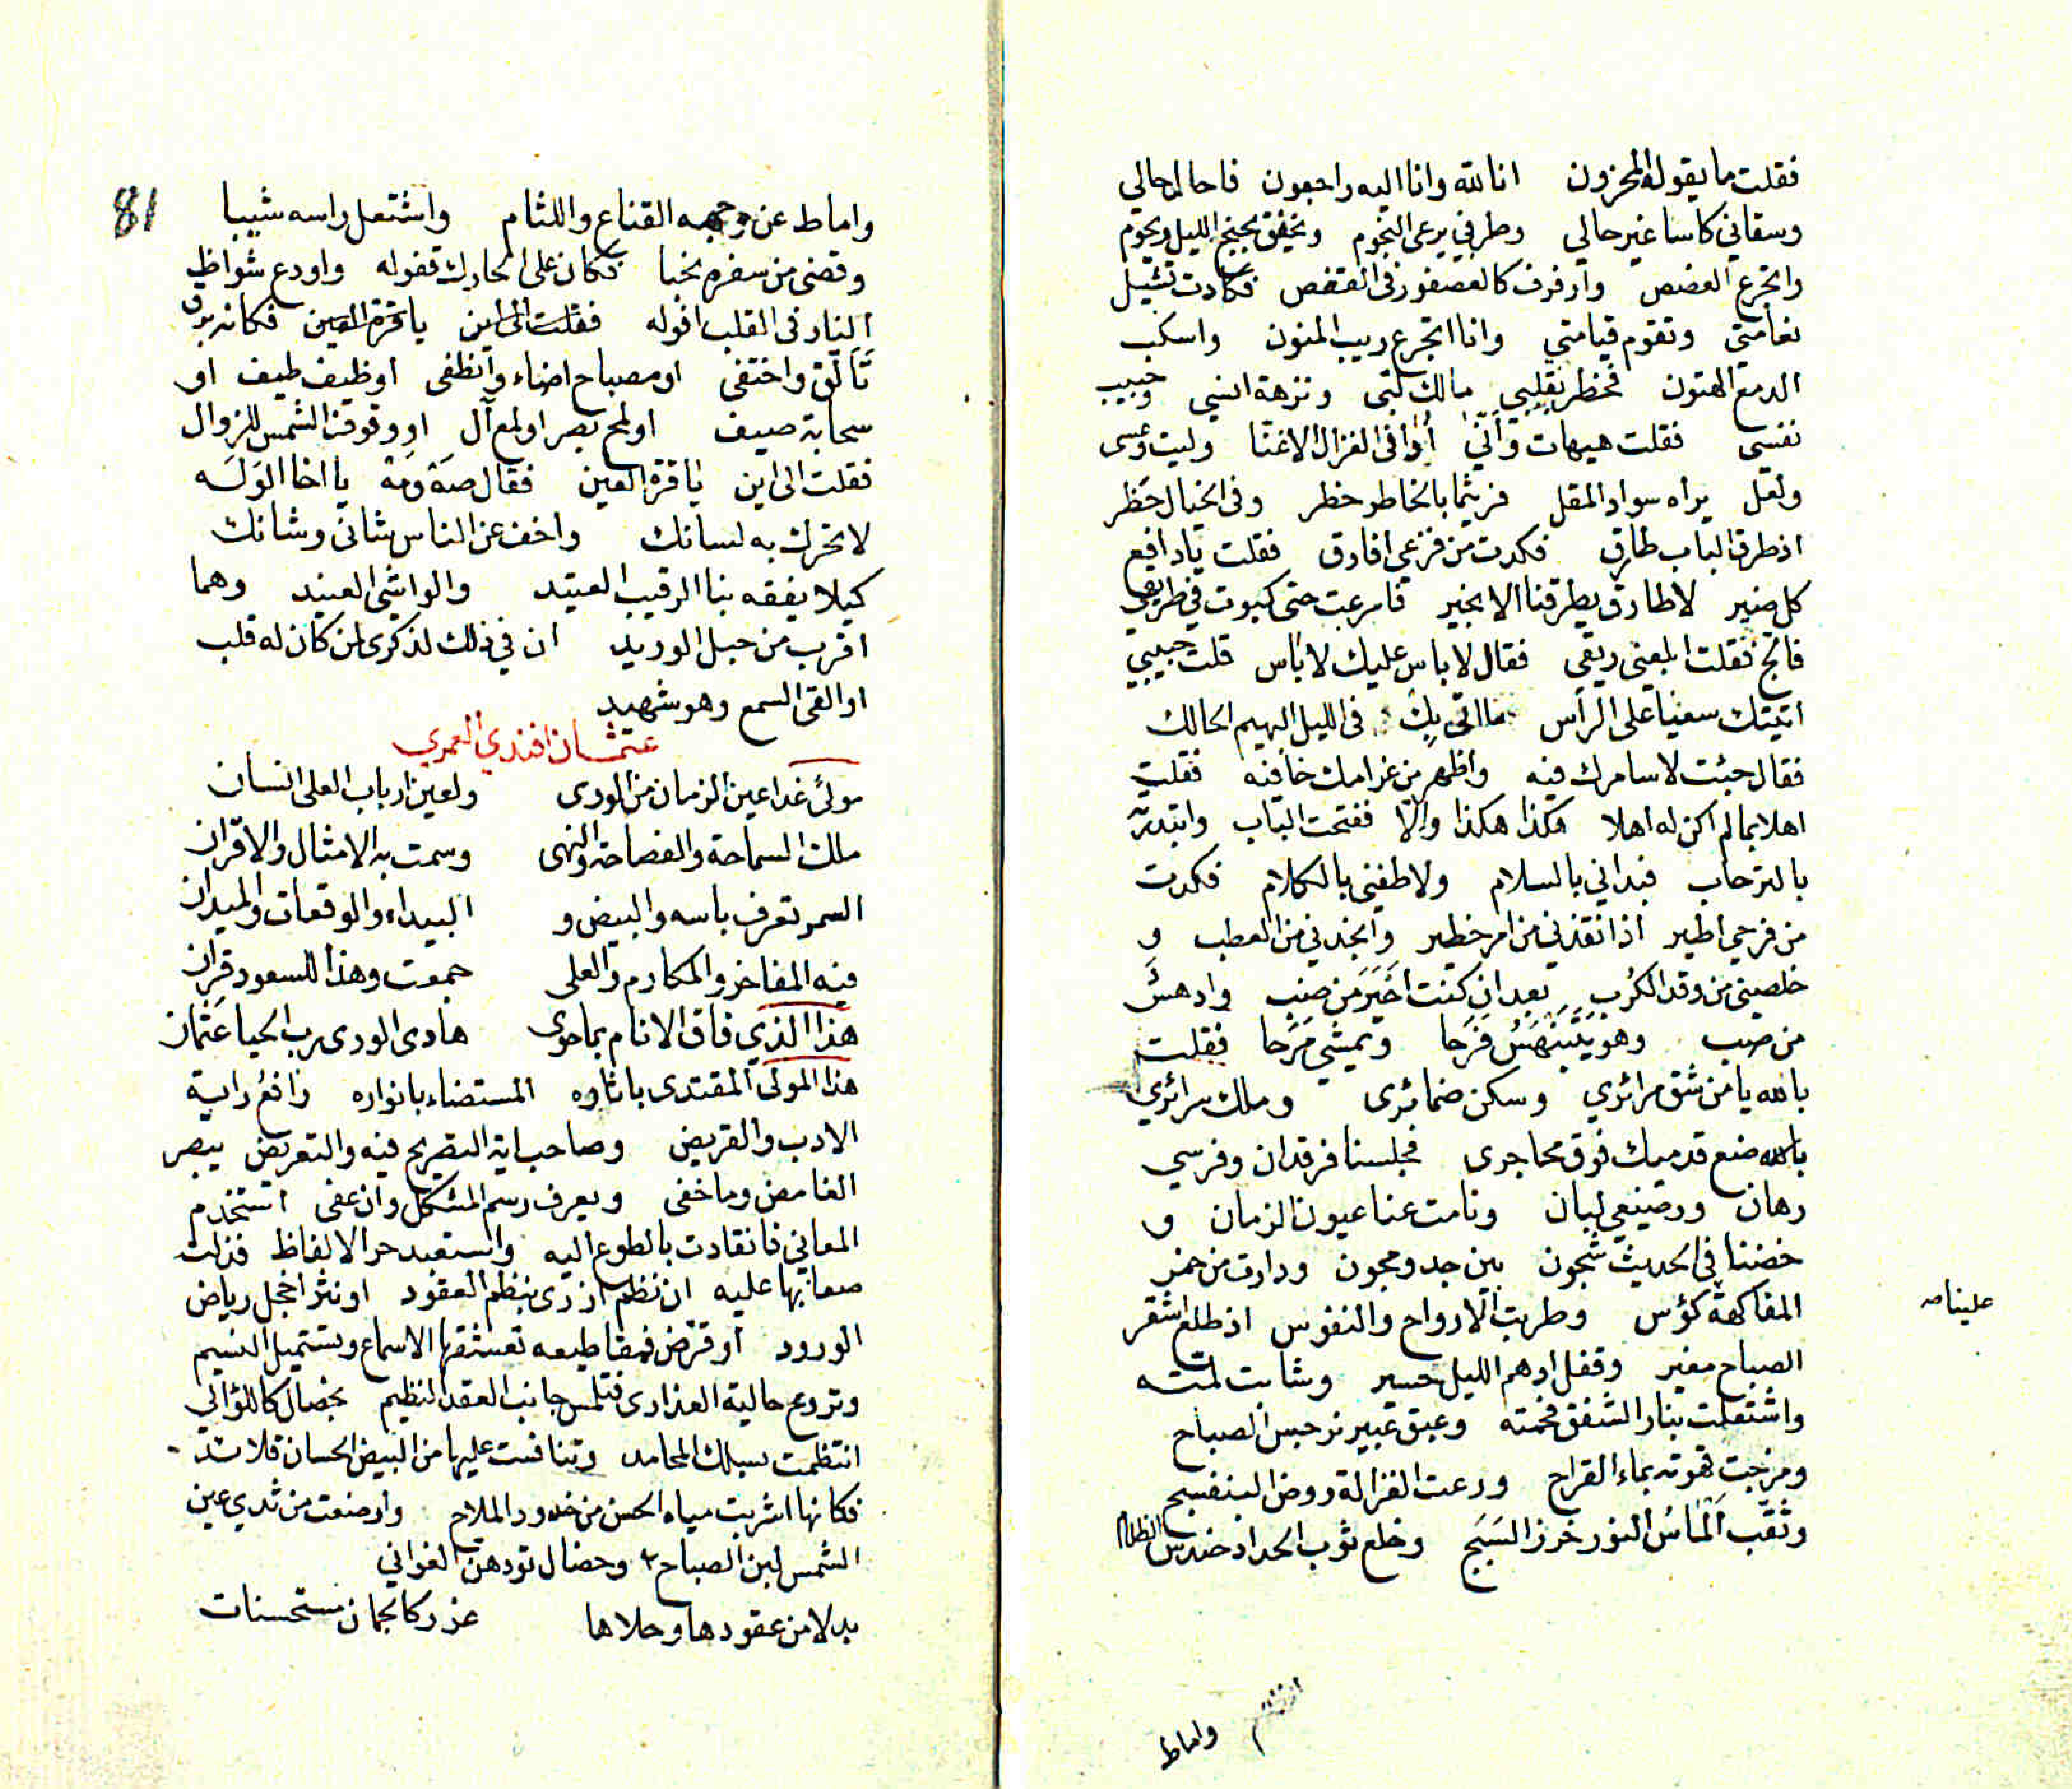 فقلت ما يقوله المحزون انا لله وانا اليه راجعون فاحالمرحالي
وسقاني كاسا غير حالي وطرفي يرعى النجوم ويخفق بجنح الليل ويحوم
واتجرع الغصص وارفرف كالعصفور فى القفص فكادت تشيل
نعامتي وتقوم قيامتي وانا اتجرع ريب المنون واسكب
الدمع الهتون فخطر بقلبي مالك لبى ونزهة انسي وحبيب
نفسى فقلت هيهات وانّى اوافى الغزال الاغنّا وليت وعسى
ولعل يراه سواد المقل فريثما بالخاطر خطر وفى الخيال حَظر
اذ طرق الباب طارق فكدت من فزعي افارق فقلت يا دافع
كل ضير لا طارق يطرقنا الا بخير فاسرعت حتى كبوت في طريقي
فانج فقلت ابلعنى ريقي فقال لا باس عليك لا باس قلت حبيبي
اتيتك سعيا على الراس ما اتى بك فى الليل البهيم الحالك
فقال جئت لاسامرك فيه واظهر من غرامك خافيه فقلت
اهلا بما لم اكن له اهلا هكذا هكذا والا ففتحت الباب وابتدرته
بالترحاب فبداني بالسلام ولاطفني بالكلام فكدت
من فرحي اطير اذ انقذني من امر خطير وانجدني من العطب و
خلصيني من وقد الكرب بعد ان كنت احير من ضب وادهش
من صب وهو يتبنهس فرحا ويمشي مرحا فقلت
بالله يا من شق مرائري وسكن ضمائرى وملك سرائري
بالله ضع قدميك فوق محاجرى فجلسنا فرقدان وفرسي
رهان ورضيعي لبان ونامت عنا عيون الزمان و
خضنا في الحديث شجون بين جد ومجون ودارت من خمر
علينا صه
المفاكهة كؤس وطربت الارواح والنفوس اذ طلع اشقر
الصباح مغير وقفل ادهم الليل حسير وشابت لمته
واشتعلت بنار الشفق فحمته وعبق عبير نرجس الصباح
ومزجت قهوته بماء القراح ورعت الغزالة روض البنفسج
وثقّب الماسُ النور خرز السَبَج وخلع ثوب الحداد حندس الظلام
واماط
81
واماط عن وجهه القناع واللثام واشتعل راسه شيبا
وقضى من سفره نحبا فكان على الحادك قفوله واودع شواظ
النار فى القلب افوله فقلت الى اين يا قرة العين فكانه برق
تَألّق واختفى او مصباح اضاء وانطفى او طيف طيف او
سحابة صيف او لمح بصر او لمع آل او وقوف الشمس للزوال
فقلت الى اين يا قرة العين فقال صَه ومَه يا اخا الوَلَه
لا تحرك به لسانك واخف عن الناس شانى وشانك
كيلا يفقه بنا الرقيب العتيد والواشي العنيد وهما
اقرب من حبل الوريد ان في ذلك لذكرى لمن كان له قلب
او القى السمع وهو شهيد
عثمان افندي العمري
مولىً غدا عين الزمان من الورى ولعين ارباب العلى انسان
ملك السماحة والفصاحة والنهى وسمت به الامثال والاقران
السمر تعرف باسه والبيض و البيداء والوقعات والميدان
فيه المفاخر والمكارم والعلى جمعت وهذا للسعود قران
هذا الذي فاق الانام بما حوى هادى الورى رب الحيا عثمان
هذا المولى المقتدى باثاره المستضاء بانواره رافع راية
الادب والقريض وصاحب اية التصريح فيه والتعريض يبصر
الغامض وما خفى ويعرف رسم المشكل وان عفى استخدم
المعاني فانقادت بالطوع اليه واستعبد حر الالفاظ فذلت
صعابها عليه ان نظم ازرى بنظم العقود او نثر اخجل رياض
الورود او قرض فمقاطيعه تعشقها الاسماع ويستميل النسيم
وتروع حالية العذارى فتلمس جانب العقد النظيم بخصال كاللؤالي
انتظمت بسلك المحامد وتنافست عليها من البيض الحسان قلائد
فكانها اشربت مياه الحسن من خدود الملاح وارضعت من ثدي عين
الشمس لبن الصباح وخصال تودهن الغواني
بدلا من عقودها وحلاها غرر كالجمان مستحسنات